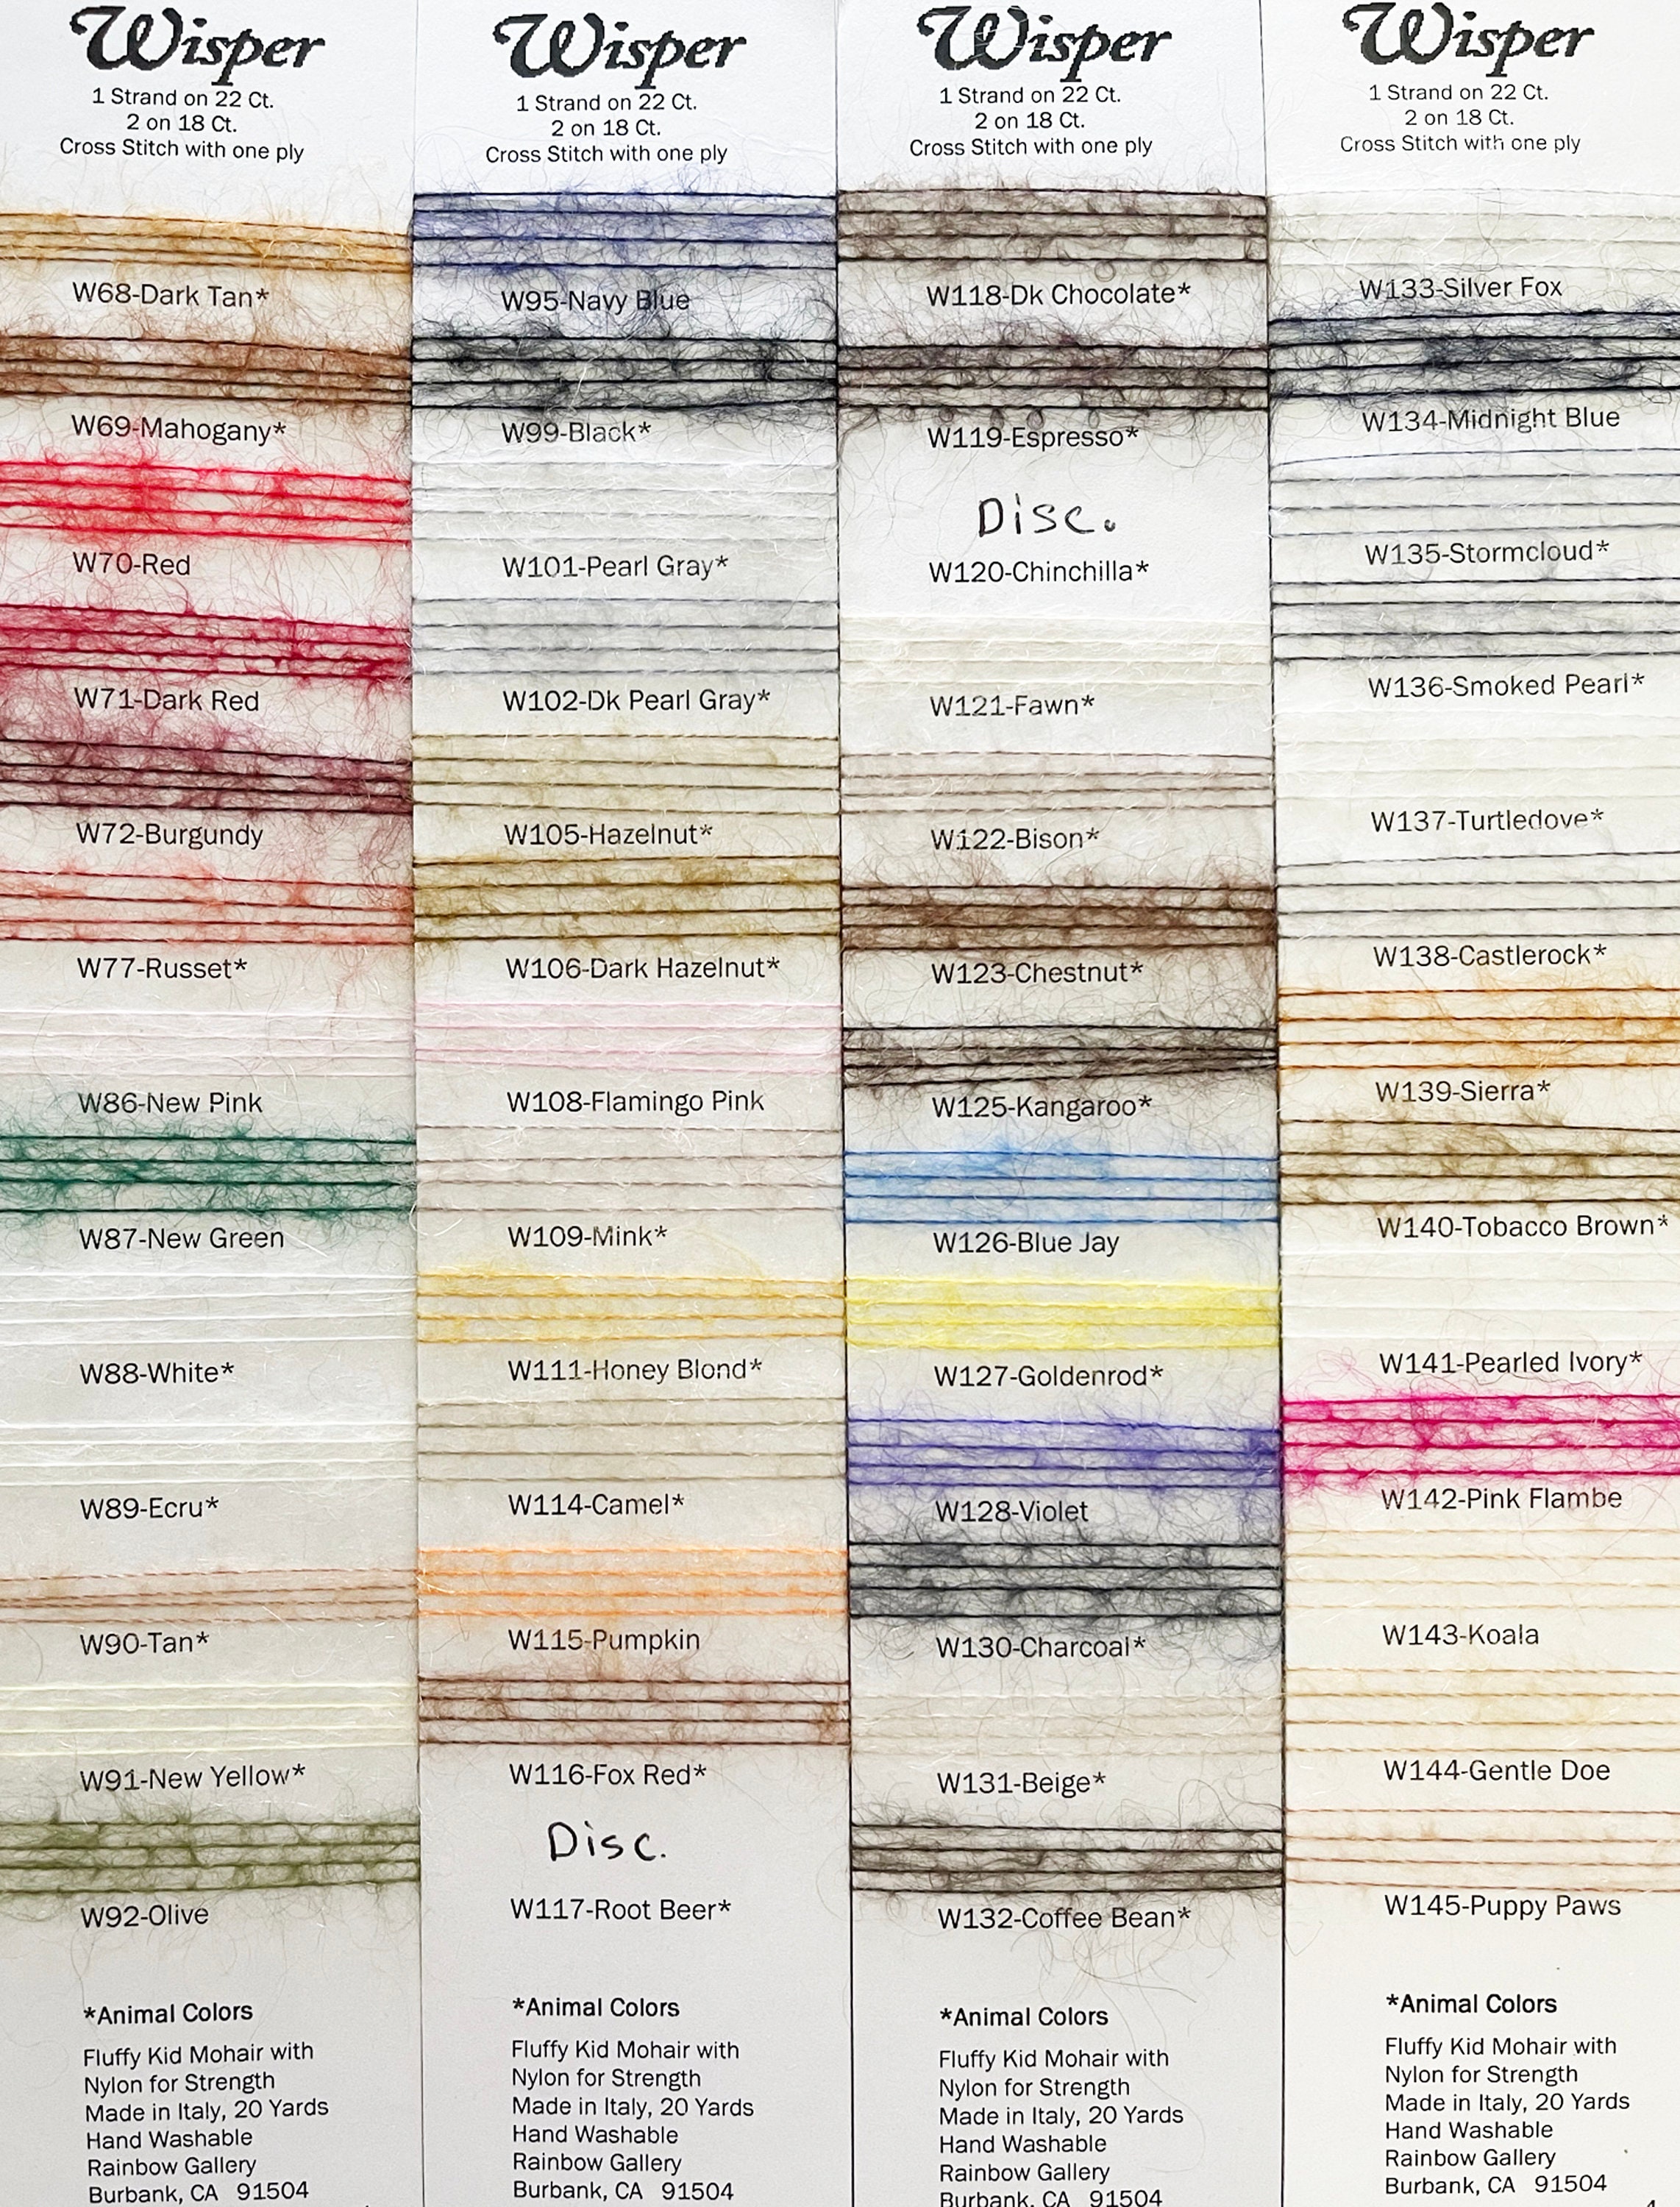 Wisper
1 Strand on 22 Ct.
2 on 18 Ct.
Cross Stitch with one ply
W68-Dark Tan*
W69-Mahogany*
W70-Red
W71-Dark Red
W72-Burgundy
W77-Russet*
W86-New Pink
W87-New Green
W88-White*
W89-Ecru*
W90-Tan*
W91-New Yellow*
W92-Olive
*Animal Colors
Fluffy Kid Mohair with
Nylon for Strength
Made in Italy, 20 Yards
Hand Washable
Rainbow Gallery
Burbank, CA 91504
Wisper
1 Strand on 22 Ct.
2 on 18 Ct.
Cross Stitch with one ply
W95-Navy Blue
W99-Black*
W101-Pearl Gray*
W102-Dk Pearl Gray*
W105-Hazelnut*
W106-Dark Hazelnut*
W108-Flamingo Pink
W109-Mink*
W111-Honey Blond*
W114-Camel*
W115-Pumpkin
W116-Fox Red*
Disc.
W117-Root Beer*
*Animal Colors
Fluffy Kid Mohair with
Nylon for Strength
Made in Italy, 20 Yards
Hand Washable
Rainbow Gallery
Burbank, CA 91504
Wisper
1 Strand on 22 Ct.
2 on 18 Ct.
Cross Stitch with one ply
W118-Dk Chocolate*
W119-Espresso*
Disc.
W120-Chinchilla*
W121-Fawn*
W122-Bison*
W123-Chestnut*
W125-Kangaroo*
W126-Blue Jay
W127-Goldenrod*
W128-Violet
W130-Charcoal*
W131-Beige*
W132-Coffee Bean*
*Animal Colors
Fluffy Kid Mohair with
Nylon for Strength
Made in Italy, 20 Yards
Hand Washable
Rainbow Gallery
Burbank, CA 91504
Wisper
1 Strand on 22 Ct.
2 on 18 Ct.
Cross Stitch with one ply
W133-Silver Fox
W134-Midnight Blue
W135-Stormcloud*
W136-Smoked Pearl*
W137-Turtledove*
W138-Castlerock*
W139-Sierra*
W140-Tobacco Brown*
W141-Pearled Ivory*
W142-Pink Flambe
W143-Koala
W144-Gentle Doe
W145-Puppy Paws
*Animal Colors
Fluffy Kid Mohair with
Nylon for Strength
Made in Italy, 20 Yards
Hand Washable
Rainbow Gallery
Burbank, CA 91504